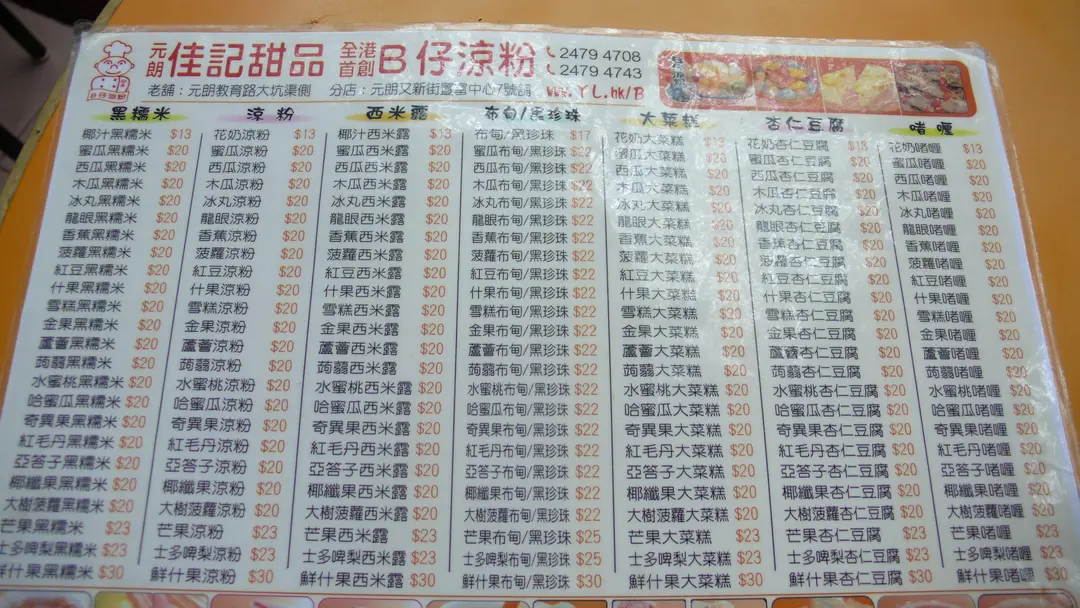 元朗 佳記甜品 全港首創 B仔涼粉 2479 4708
2479 4743
老舖：元朗教育路大坑渠側 分店：元朗又新街 WWW.YL.hk/B
B仔涼粉
黑糯米 涼粉 西米露 布甸/黑珍珠 大菜糕 杏仁豆腐 啫喱
椰汁黑糯米 $13 花奶涼粉 $13 椰汁西米露 $13 布甸/黑珍珠 $17 花奶大菜糕 $13 花奶杏仁豆腐 $13 花奶啫喱 $13
蜜瓜黑糯米 $20 蜜瓜涼粉 $20 蜜瓜西米露 $20 蜜瓜布甸/黑珍珠 $22 蜜瓜大菜糕 $20 蜜瓜杏仁豆腐 $20 蜜瓜啫喱 $20
西瓜黑糯米 $20 西瓜涼粉 $20 西瓜西米露 $20 西瓜布甸/黑珍珠 $22 西瓜大菜糕 $20 西瓜杏仁豆腐 $20 西瓜啫喱 $20
木瓜黑糯米 $20 木瓜涼粉 $20 木瓜西米露 $20 木瓜布甸/黑珍珠 $22 木瓜大菜糕 $20 木瓜杏仁豆腐 $20 木瓜啫喱 $20
冰丸黑糯米 $20 冰丸涼粉 $20 冰丸西米露 $20 冰丸布甸/黑珍珠 $22 冰丸大菜糕 $20 冰丸杏仁豆腐 $20 冰丸啫喱 $20
龍眼黑糯米 $20 龍眼涼粉 $20 龍眼西米露 $20 龍眼布甸/黑珍珠 $22 龍眼大菜糕 $20 龍眼杏仁豆腐 $20 龍眼啫喱 $20
香蕉黑糯米 $20 香蕉涼粉 $20 香蕉西米露 $20 香蕉布甸/黑珍珠 $22 香蕉大菜糕 $20 香蕉杏仁豆腐 $20 香蕉啫喱 $20
菠蘿黑糯米 $20 菠蘿涼粉 $20 菠蘿西米露 $20 菠蘿布甸/黑珍珠 $22 菠蘿大菜糕 $20 菠蘿杏仁豆腐 $20 菠蘿啫喱 $20
紅豆黑糯米 $20 紅豆涼粉 $20 紅豆西米露 $20 紅豆布甸/黑珍珠 $22 紅豆大菜糕 $20 紅豆杏仁豆腐 $20 紅豆啫喱 $20
什果黑糯米 $20 什果涼粉 $20 什果西米露 $20 什果布甸/黑珍珠 $22 什果大菜糕 $20 什果杏仁豆腐 $20 什果啫喱 $20
雪糕黑糯米 $20 雪糕涼粉 $20 雪糕西米露 $20 雪糕布甸/黑珍珠 $22 雪糕大菜糕 $20 雪糕杏仁豆腐 $20 雪糕啫喱 $20
金果黑糯米 $20 金果涼粉 $20 金果西米露 $20 金果布甸/黑珍珠 $22 金果大菜糕 $20 金果杏仁豆腐 $20 金果啫喱 $20
蘆薈黑糯米 $20 蘆薈涼粉 $20 蘆薈西米露 $20 蘆薈布甸/黑珍珠 $22 蘆薈大菜糕 $20 蘆薈杏仁豆腐 $20 蘆薈啫喱 $20
蒟蒻黑糯米 $20 蒟蒻涼粉 $20 蒟蒻西米露 $20 蒟蒻布甸/黑珍珠 $22 蒟蒻大菜糕 $20 蒟蒻杏仁豆腐 $20 蒟蒻啫喱 $20
水蜜桃黑糯米 $20 水蜜桃涼粉 $20 水蜜桃西米露 $20 水蜜桃布甸/黑珍珠 $22 水蜜桃大菜糕 $20 水蜜桃杏仁豆腐 $20 水蜜桃啫喱 $20
哈蜜瓜黑糯米 $20 哈蜜瓜涼粉 $20 哈蜜瓜西米露 $20 哈蜜瓜布甸/黑珍珠 $22 哈蜜瓜大菜糕 $20 哈蜜瓜杏仁豆腐 $20 哈蜜瓜啫喱 $20
奇異果黑糯米 $20 奇異果涼粉 $20 奇異果西米露 $20 奇異果布甸/黑珍珠 $22 奇異果大菜糕 $20 奇異果杏仁豆腐 $20 奇異果啫喱 $20
紅毛丹黑糯米 $20 紅毛丹涼粉 $20 紅毛丹西米露 $20 紅毛丹布甸/黑珍珠 $22 紅毛丹大菜糕 $20 紅毛丹杏仁豆腐 $20 紅毛丹啫喱 $20
亞答子黑糯米 $20 亞答子涼粉 $20 亞答子西米露 $20 亞答子布甸/黑珍珠 $22 亞答子大菜糕 $20 亞答子杏仁豆腐 $20 亞答子啫喱 $20
椰纖果黑糯米 $20 椰纖果涼粉 $20 椰纖果西米露 $20 椰纖果布甸/黑珍珠 $22 椰纖果大菜糕 $20 椰纖果杏仁豆腐 $20 椰纖果啫喱 $20
大樹菠蘿黑糯米 $20 大樹菠蘿涼粉 $20 大樹菠蘿西米露 $20 大樹菠蘿布甸/黑珍珠 $22 大樹菠蘿大菜糕 $20 大樹菠蘿杏仁豆腐 $20 大樹菠蘿啫喱 $20
芒果黑糯米 $23 芒果涼粉 $23 芒果西米露 $23 芒果布甸/黑珍珠 $25 芒果大菜糕 $23 芒果杏仁豆腐 $23 芒果啫喱 $23
士多啤梨黑糯米 $23 士多啤梨涼粉 $23 士多啤梨西米露 $23 士多啤梨布甸/黑珍珠 $25 士多啤梨大菜糕 $23 士多啤梨杏仁豆腐 $23 士多啤梨啫喱 $23
鮮什果黑糯米 $30 鮮什果涼粉 $30 鮮什果西米露 $30 鮮什果布甸/黑珍珠 $30 鮮什果大菜糕 $30 鮮什果杏仁豆腐 $30 鮮什果啫喱 $30